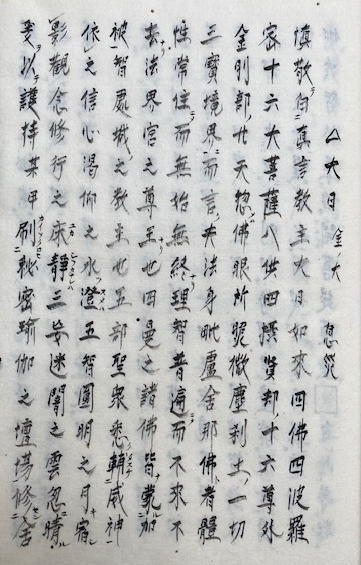 △大日 金ノ大 息災
慎敬白真言教主大日如來四佛四波羅
密十六大菩薩八供四攝賢劫十六尊外
金剛部廿天惣佛眼所照微塵刹土ノ一切
三寶境界而言夫法身毗盧舍那佛者體
性常住而無始無終理智普遍而不來不
去法界宮之尊主也四曼之諸佛皆蒙加
被智處城之教主也五部聖衆悉輔威神
依之信心渇仰之水澄五智圓明之月宿
影觀念修行之床靜三妄迷闇之雲忽晴
爰以護持某甲刷秘密瑜伽之壇場修舍